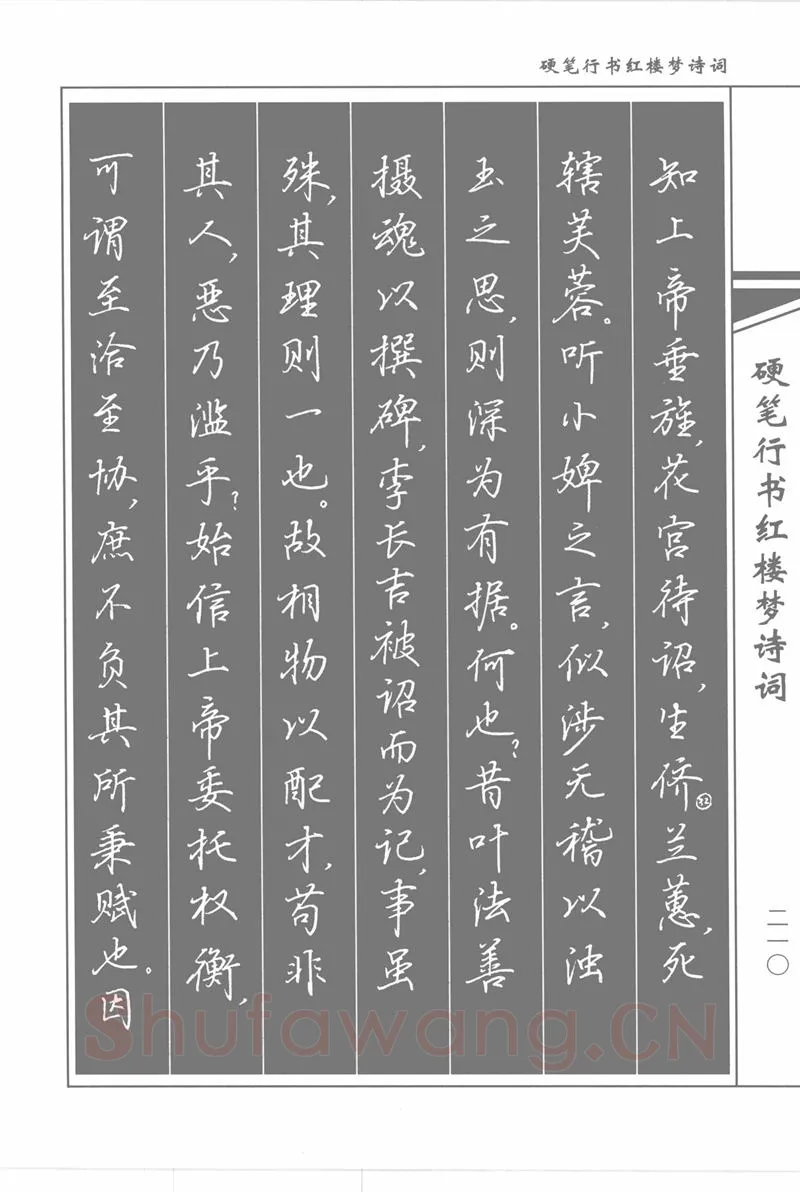 硬笔行书红楼梦诗词
知上帝垂旌,花宫待诏,生侪㉜兰蕙,死
辖芙蓉。听小婢之言,似涉无稽以浊
玉之思,则深为有据。何也?昔叶法善
摄魂以撰碑,李长吉被诏而为记,事虽
殊,其理则一也。故相物以配才,苟非
其人,恶乃滥乎?始信上帝委托权衡,
可谓至洽至协,庶不负其所秉赋也。因
硬笔行书红楼梦诗词
二一〇
Shufawang.CN